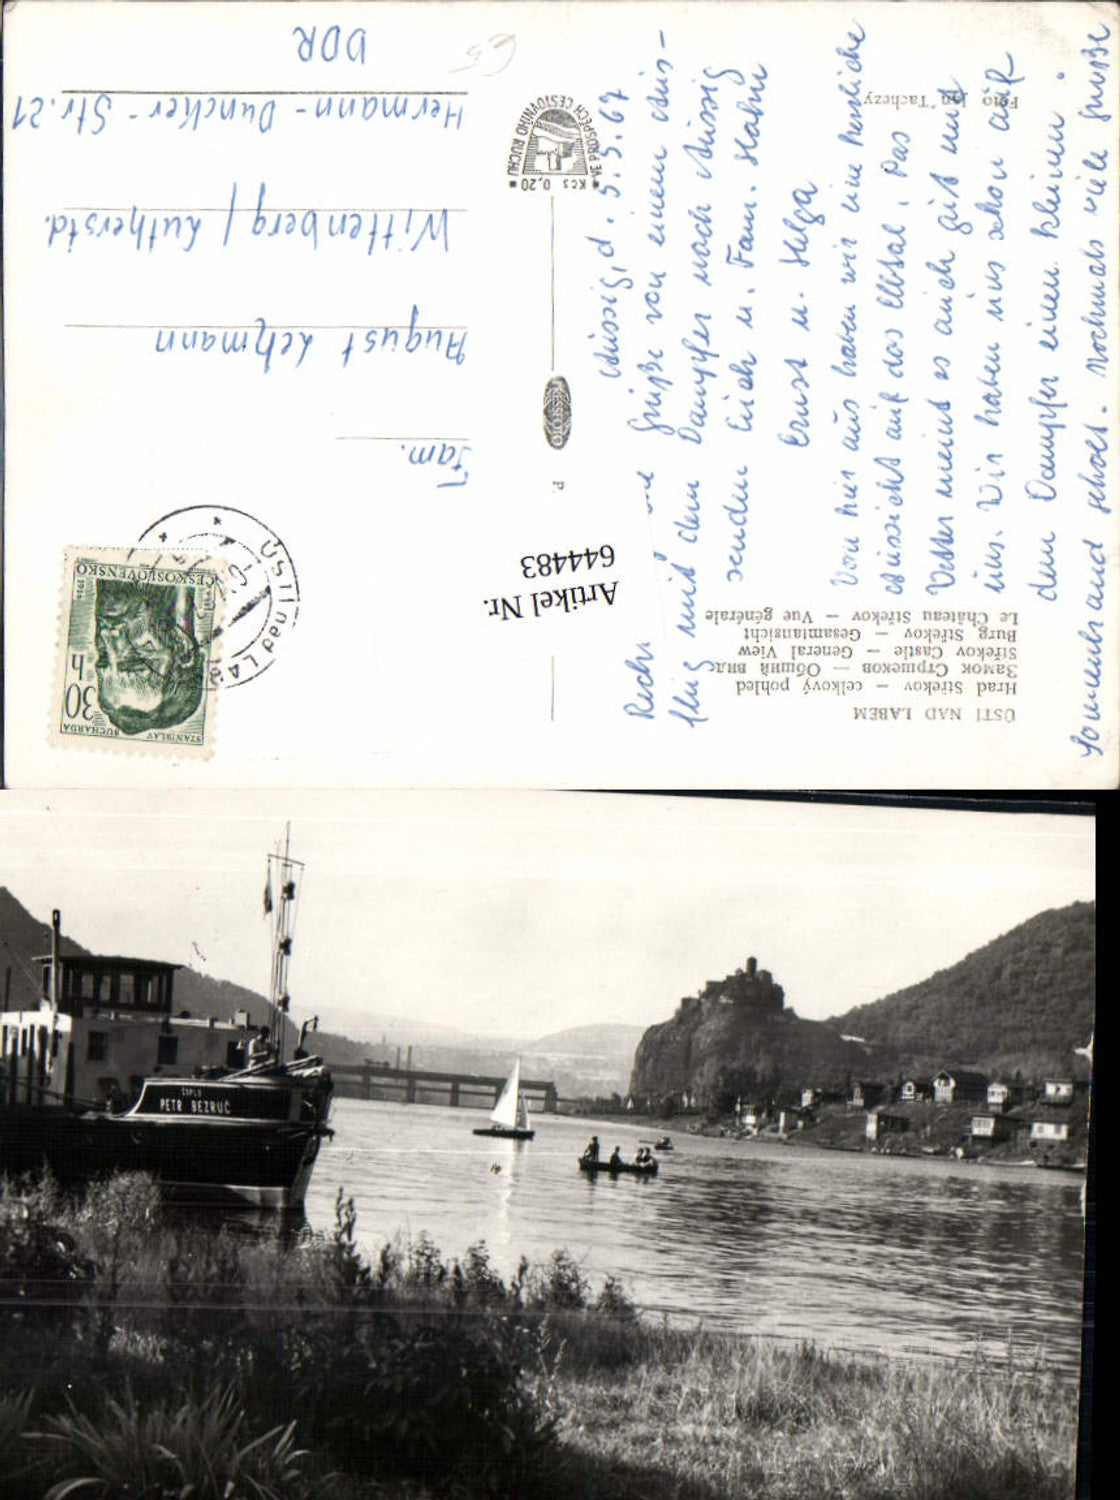 ÚSTÍ NAD LABEM
Hrad Střekov — celkový pohled
Замок Стршеков — Общий вид
Střekov Castle — General View
Burg Střekov — Gesamtansicht
Le Château Střekov — Vue générale
Foto Jan Tachezy
Artikel Nr.
644483
P.
ORBIS
Kčs 0,20
VE PROSPĚCH CESTOVNÍHO RUCHU
Aussig, d. 5.5.67
Grüße von einem Aus-
flug mit dem Dampfer nach Aussig
senden Euch u. Fam. Hahn
Ernst u. Helga
Von hier aus haben wir eine herrliche
Aussicht auf das Elbtal. Das
Wetter meint es auch gut mit
uns. Wir haben uns schon auf
dem Dampfer einen kleinen
Sonnenbrand geholt. Nochmals viele Grüße
Fam.
August Lehmann
Wittenberg / Lutherstd.
Hermann-Duncker-Str. 21
DDR
STANISLAV SUCHARDA
30 h
ČESKOSLOVENSKO
ÚSTÍ nad LAB
ČSPLO
PETR BEZRUČ